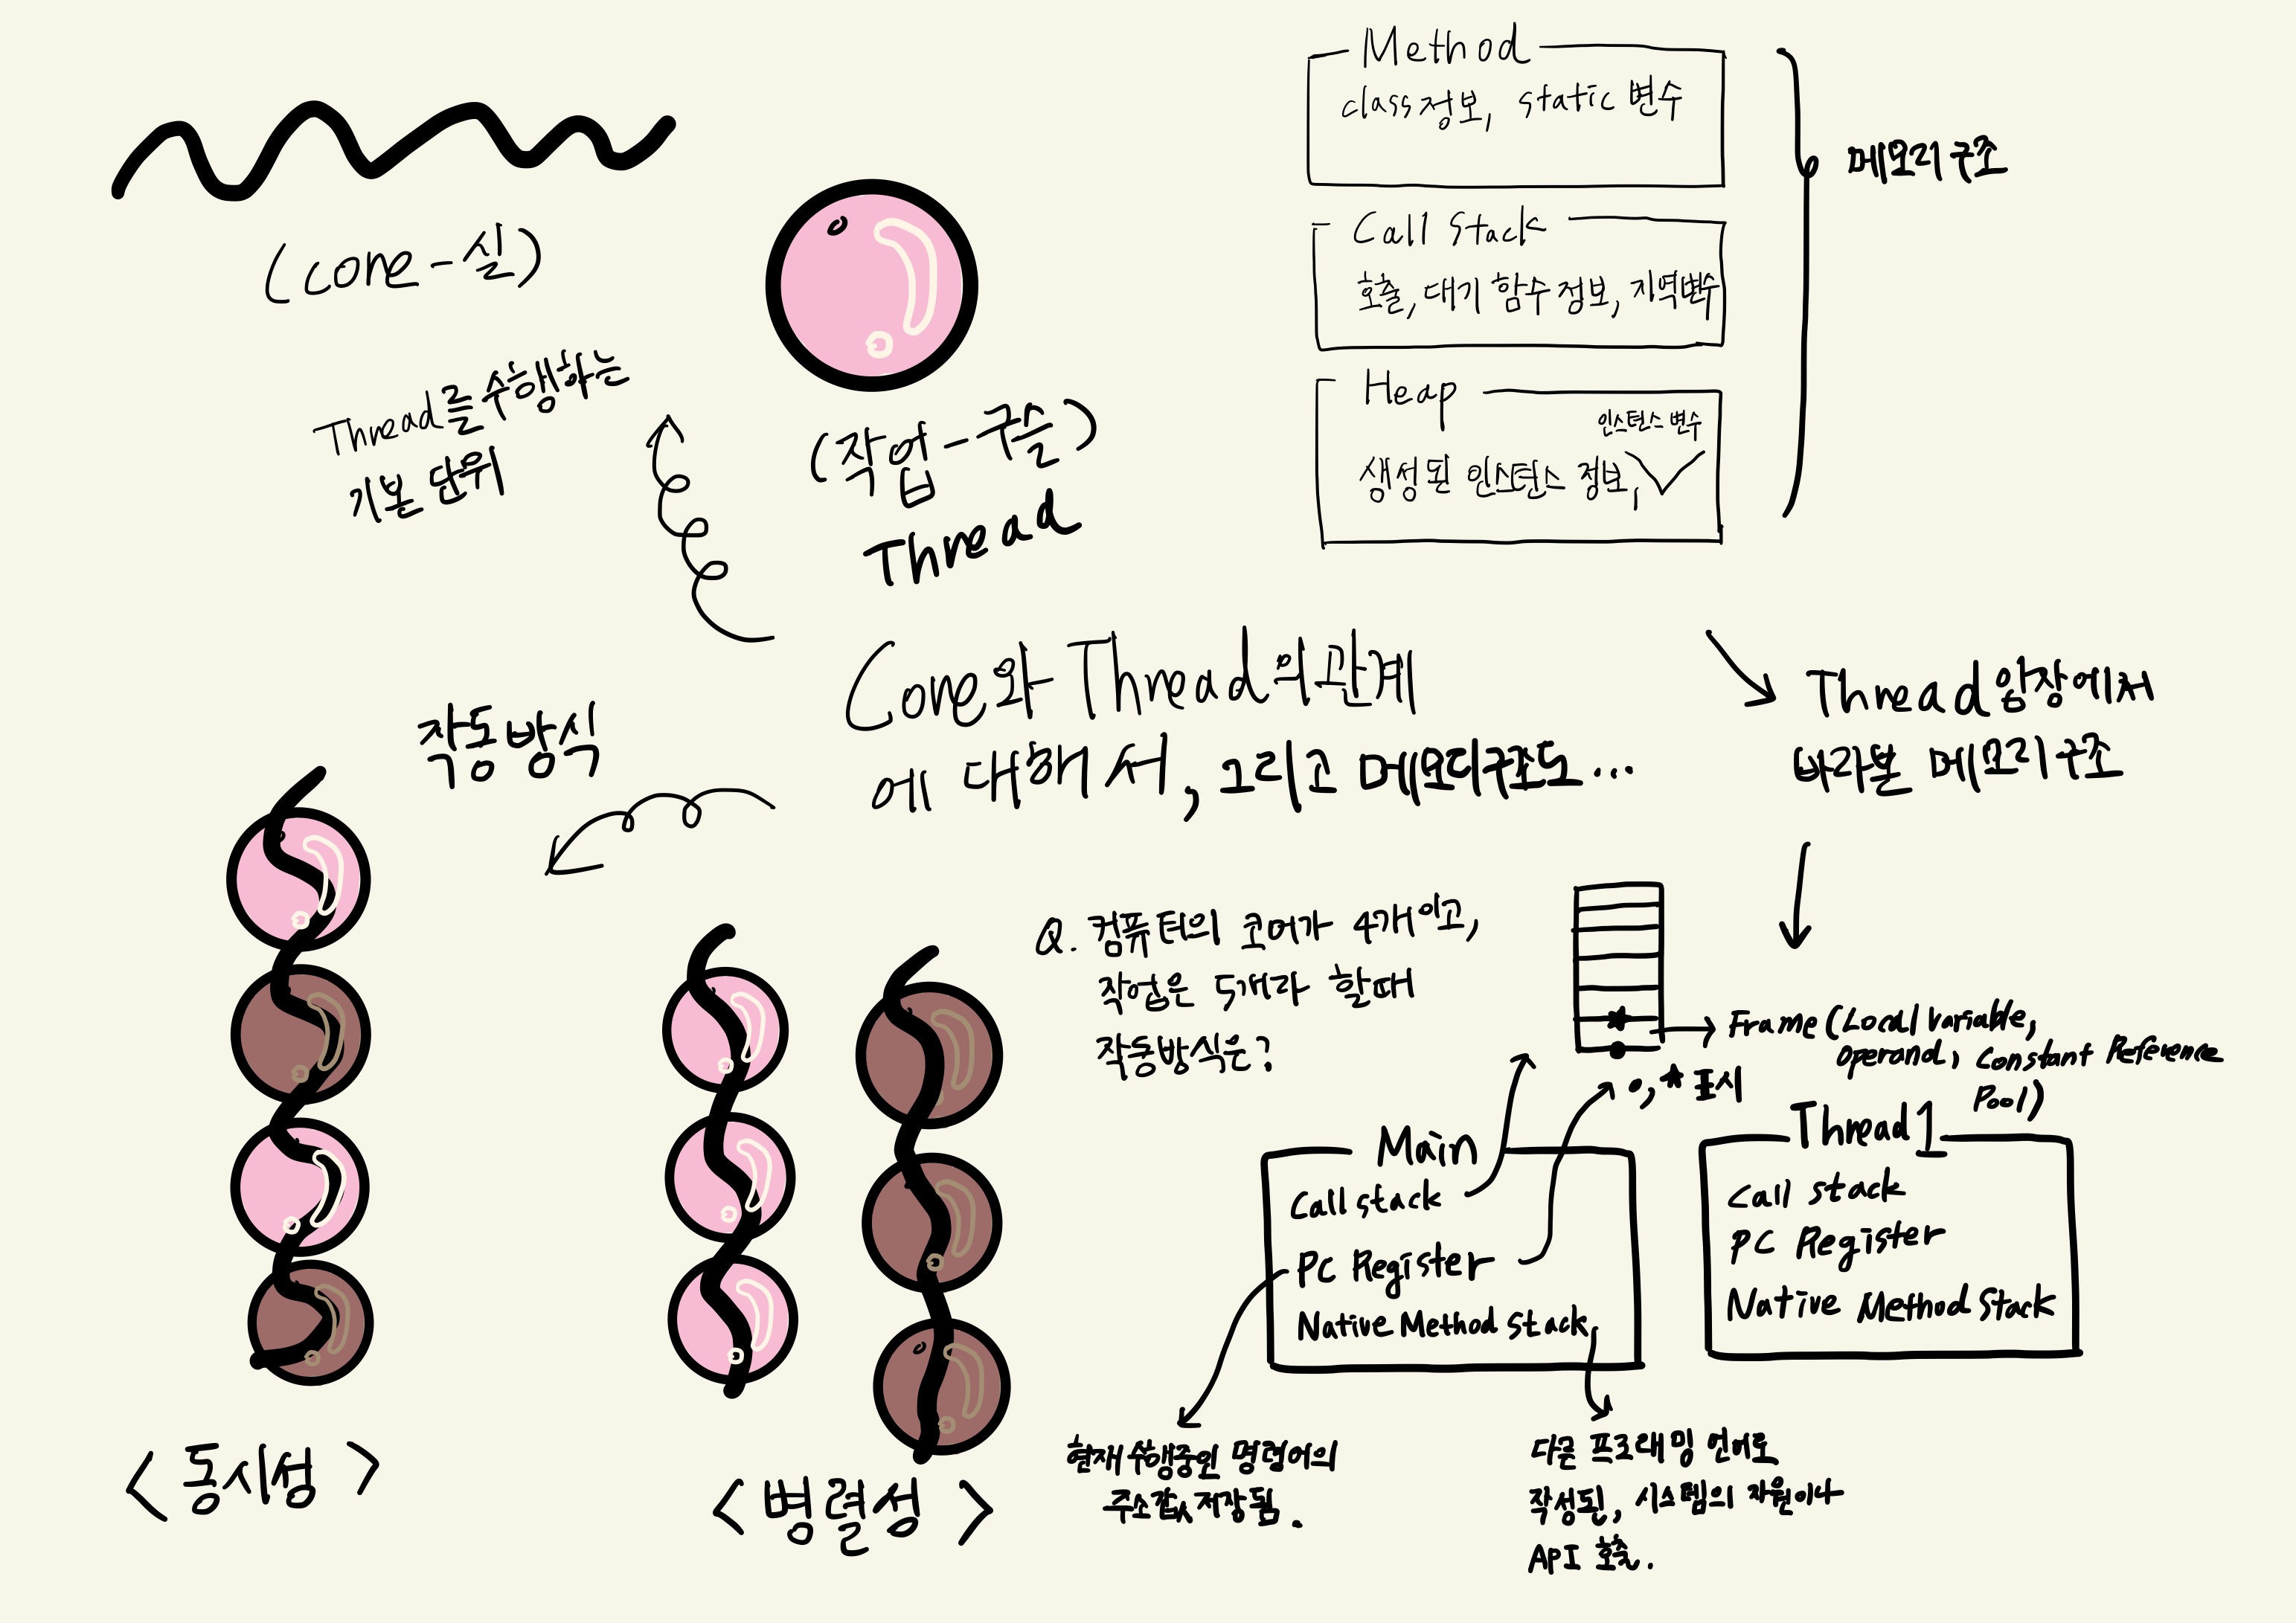 (core-실)
Thread를 수행하는
기본 단위
(작업-구슬)
Thread
Method
class 정보, static 변수
Call Stack
호출, 대기 함수 정보, 지역변수
Heap
인스턴스 변수
생성된 인스턴스 정보,
메모리 구조
Core와 Thread의 관계
에 대해서, 그리고 메모리구조도...
작동방식
<동시성>
<병렬성>
Q. 컴퓨터의 코어가 4개이고,
작업은 5개라 할때
작동방식은?
Thread 입장에서
바라본 메모리구조
Frame (Local Variable,
Operand, Constant Reference
Pool)
•, ★ 표시
Main
Call stack
PC Register
Native Method Stack
Thread 1
Call stack
PC Register
Native Method Stack
현재 수행중인 명령어의
주소값 저장됨.
다른 프로래밍 언어로
작성된, 시스템의 자원이나
API 호출.